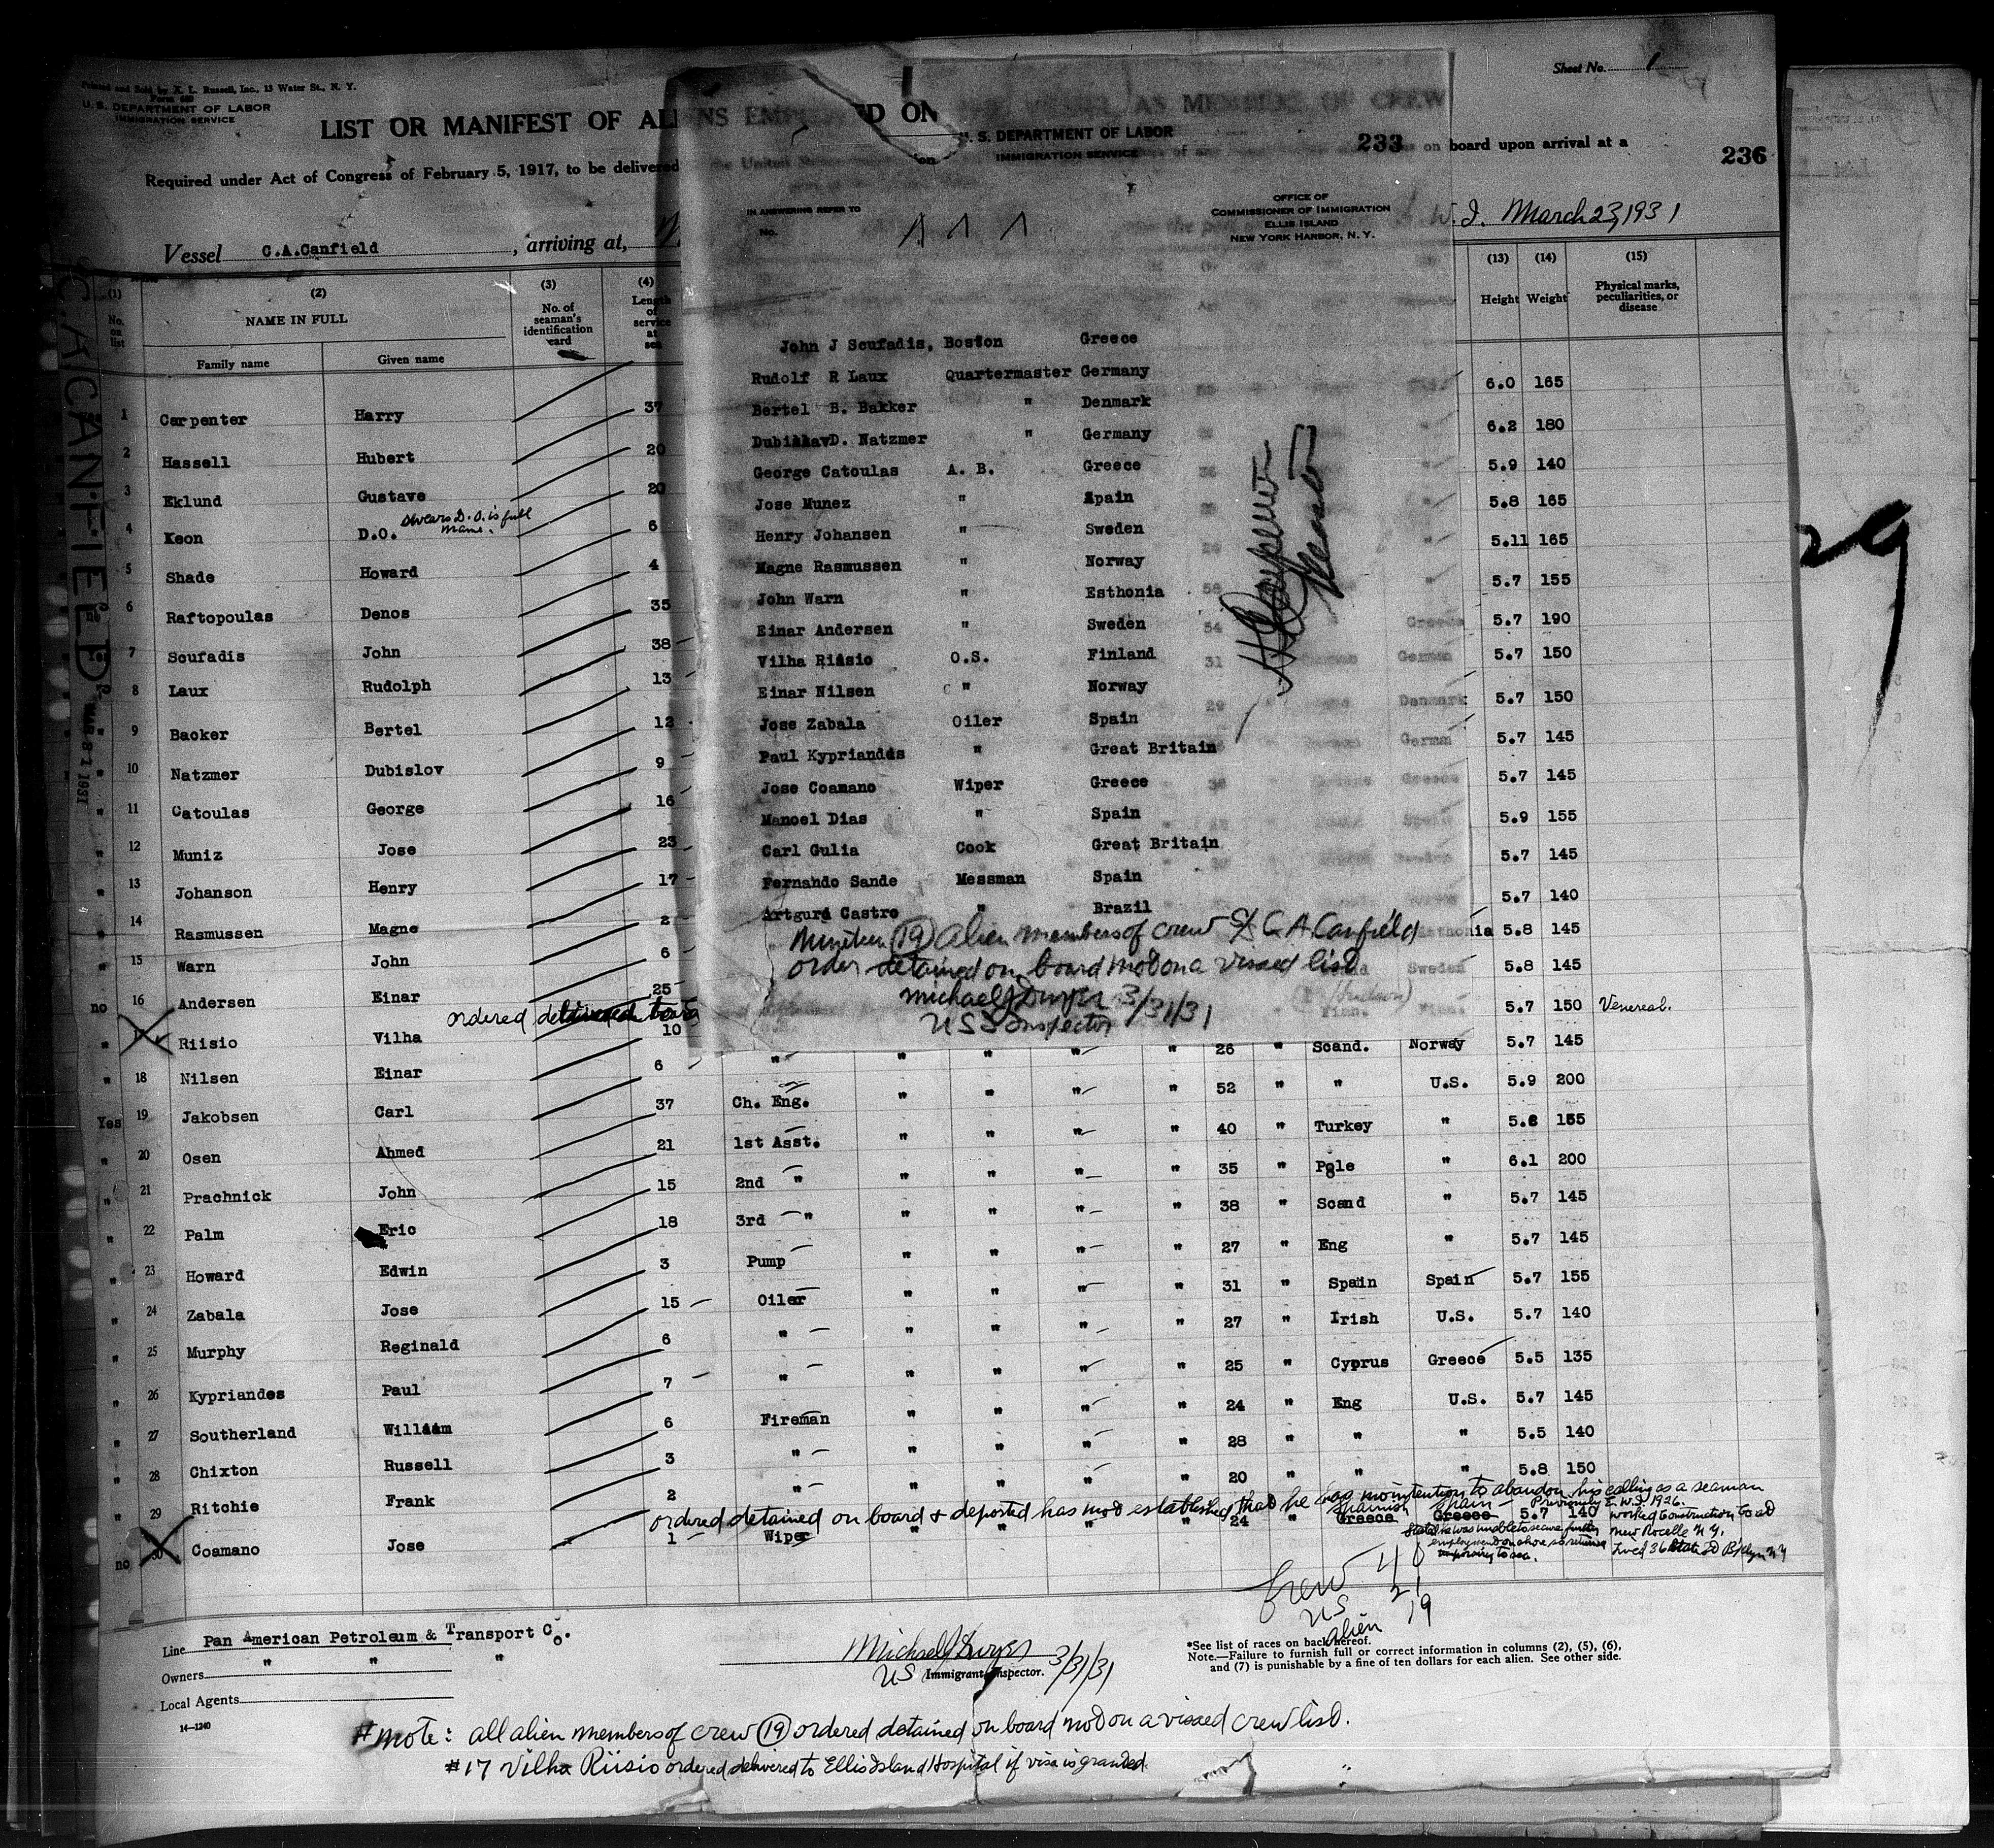 Printed and Sold by X. L. Russell, Inc., 13 Water St., N. Y.
Form 680
U. S. DEPARTMENT OF LABOR
IMMIGRATION SERVICE
Sheet No. 1
LIST OR MANIFEST OF ALIENS EMPLOYED ON VESSEL AS MEMBERS OF CREW
236
Required under Act of Congress of February 5, 1917, to be delivered
on board upon arrival at a
Vessel C.A.Canfield, arriving at,
W. I. March 23, 1931
C.A. CANFIELD
MAR 31 1931
(1) No. on list
(2) NAME IN FULL
Family name Given name
(3) No. of seaman's identification card
(4) Length of service at sea
(13) Height
(14) Weight
(15) Physical marks, peculiarities, or disease
1 Carpenter Harry 37 6.0 165
2 Hassell Hubert 20 6.2 180
3 Eklund Gustave 20 5.9 140
4 Keon D.O. swears D.O. is full name. 6 5.8 165
5 Shade Howard 4 5.11 165
6 Raftopoulas Denos 35 5.7 155
7 Soufadis John 38 5.7 190
8 Laux Rudolph 13 5.7 150
9 Backer Bertel 12 5.7 150
10 Natzmer Dubislov 9 5.7 145
11 Catoulas George 16 5.7 145
12 Muniz Jose 23 5.9 155
13 Johanson Henry 17 5.7 145
14 Rasmussen Magne 2 5.7 140
15 Warn John 6 5.8 145
no 16 Andersen Einar 25 Sweden 5.8 145
ordered detained
" Riisio Vilha 10 5.7 150 Venereal.
" 18 Nilsen Einar 6 " " " " " 26 " Scand. Norway 5.7 145
Yes 19 Jakobsen Carl 37 Ch. Eng. " " " " 52 " " U.S. 5.9 200
" 20 Osen Ahmed 21 1st Asst. " " " " 40 " Turkey " 5.8 155
" 21 Prachnick John 15 2nd " " " " " 35 " Pole " 6.1 200
" 22 Palm Eric 18 3rd " " " " " 38 " Scand " 5.7 145
" 23 Howard Edwin 3 Pump " " " " 27 " Eng " 5.7 145
" 24 Zabala Jose 15 Oiler " " " " 31 " Spain Spain 5.7 155
" 25 Murphy Reginald 6 " " " " " 27 " Irish U.S. 5.7 140
" 26 Kypriandes Paul 7 " " " " " 25 " Cyprus Greece 5.5 135
" 27 Southerland William 6 Fireman " " " " 24 " Eng U.S. 5.7 145
" 28 Chixton Russell 3 " " " " " 28 " " " 5.5 140
" 29 Ritchie Frank 2 " " " " " 20 " " " 5.8 150
ordered detained on board & deported has not established that he has no intention to abandon his calling as a seaman
no 30 Coamano Jose 1 Wiper " " " " 24 " Greece Spanish Greece Spain 5.7 140
Previously E. W. I. 1926.
worked Construction
New Rocelle N Y.
Stated he was unable to secure further
employment on shore so returned
to sea.
Lived 36 State St Bklyn N Y
Crew 40
US 21
alien 19
U. S. DEPARTMENT OF LABOR
IMMIGRATION SERVICE
233
IN ANSWERING REFER TO
No.
OFFICE OF
COMMISSIONER OF IMMIGRATION
ELLIS ISLAND
NEW YORK HARBOR, N. Y.
John J Soufadis, Boston Greece
Rudolf R Laux Quartermaster Germany
Bertel B. Bakker " Denmark
DubislavD. Natzmer " Germany
George Catoulas A. B. Greece
Jose Munez " Spain
Henry Johansen " Sweden
Magne Rasmussen " Norway
John Warn " Esthonia
Einar Andersen " Sweden
Vilha Riisio O.S. Finland
Einar Nilsen " Norway
Jose Zabala Oiler Spain
Paul Kypriandes " Great Britain
Jose Coamano Wiper Greece
Manoel Dias " Spain
Carl Gulia Cook Great Britain
Fernahdo Sande Messman Spain
Artgura Castro " Brazil
H Carpenter
Master
Nineteen (19) alien members of crew SS C.A. Canfield
order detained on board not on a visaed list
Michael J Dwyer 3/31/31
U S Inspector
29
Line Pan American Petroleum & Transport Co.
Owners " " "
Local Agents
14—1240
Michael J Dwyer
US Immigrant Inspector. 3/31/31
*See list of races on back hereof.
Note.—Failure to furnish full or correct information in columns (2), (5), (6),
and (7) is punishable by a fine of ten dollars for each alien. See other side.
# Note: all alien members of crew (19) ordered detained on board not on a visaed crew list.
#17 Vilha Riisio ordered delivered to Ellis Island Hospital if visa is granted.